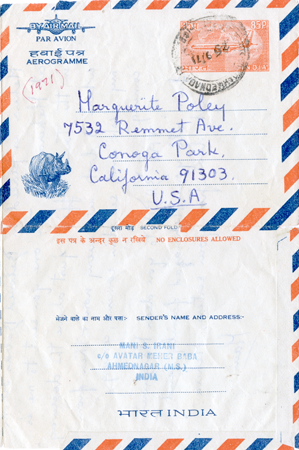 BY AIR MAIL
PAR AVION
हवाई पत्र
AEROGRAMME
85P
INDIA
(1971)
Marguerite Poley
7532 Remmet Ave.
Conoga Park,
California 91303.
U.S.A
दूसरा मोड़ SECOND FOLD
इस पत्र के अन्दर कुछ न रखिये NO ENCLOSURES ALLOWED
भेजने वाले का नाम और पता:- SENDER'S NAME AND ADDRESS:-
MANI S. IRANI
c/o AVATAR MEHER BABA
AHMEDNAGAR (M.S.)
INDIA
भारत INDIA